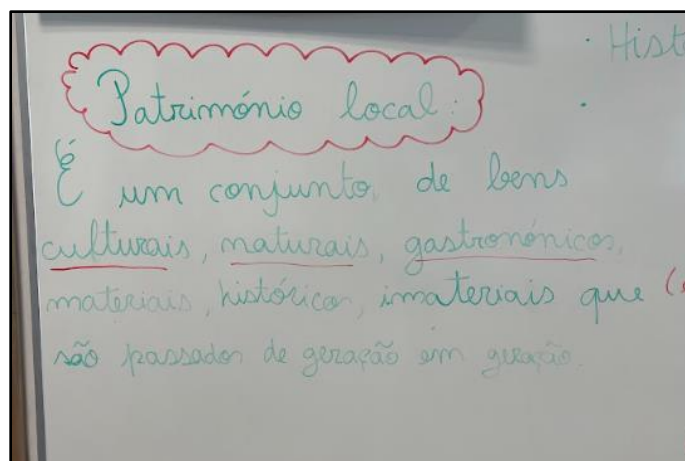 Património local:
É um conjunto de bens
culturais, naturais, gastronónicos,
materiais, históricos, imateriais que
são passados de geração em geração.